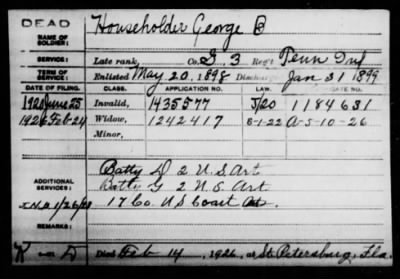 DEAD
Householder George B
NAME OF SOLDIER:
SERVICE: Late rank, Co. G. 3 Reg't Tenn Inf
TERM OF SERVICE: Enlisted May 20, 1898 Discharged Jan 31 1899
DATE OF FILING. CLASS. APPLICATION NO. LAW. CERTIFICATE NO.
1920 June 25 Invalid, 1435577 J/20 1184631
1926 Feb 24 Widow, 1242417 5-1-22 A-5-10-26
Minor,
ADDITIONAL SERVICES:
Batty D 2 U.S Art
Batty G 2 U.S Art
17 Co. U S Coast Art
REMARKS:
Died Feb 14, 1926, at St. Petersburg, Fla.